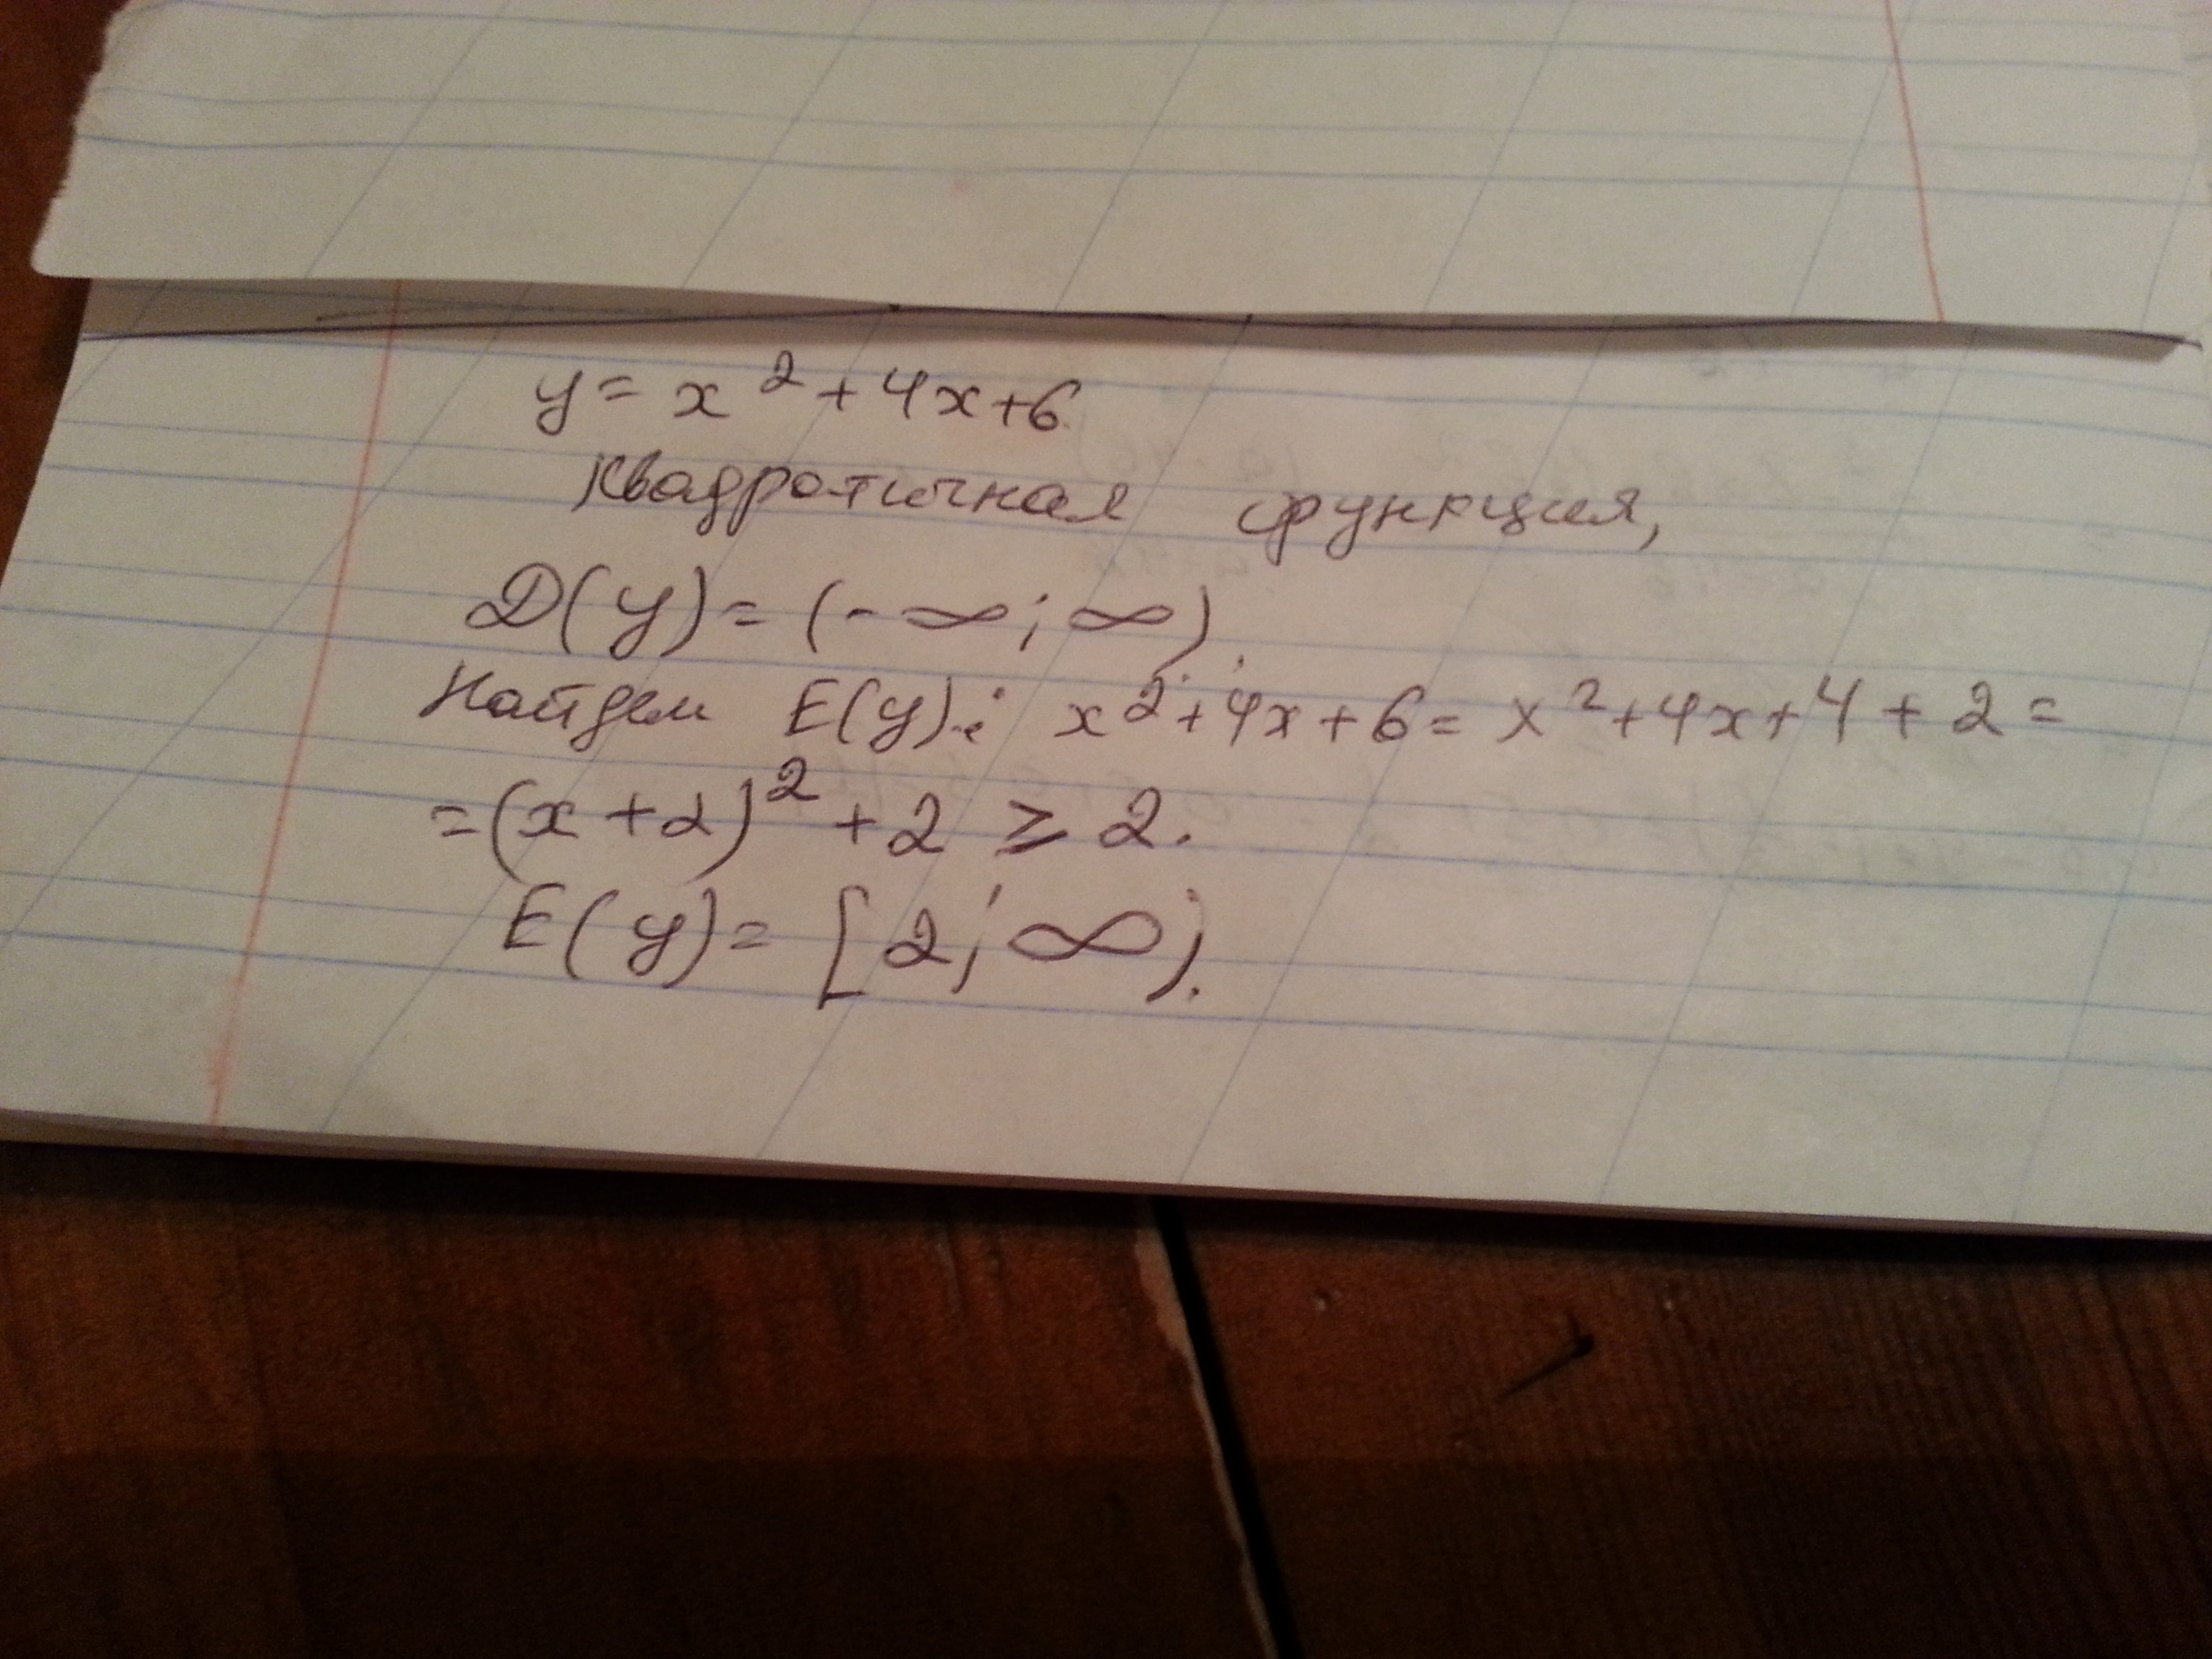 y = x² + 4x + 6
Квадратичная функция,
D(y) = (-∞; ∞).
Найдем E(y): x² + 4x + 6 = x² + 4x + 4 + 2 =
= (x + 2)² + 2 ≥ 2.
E(y) = [2; ∞).